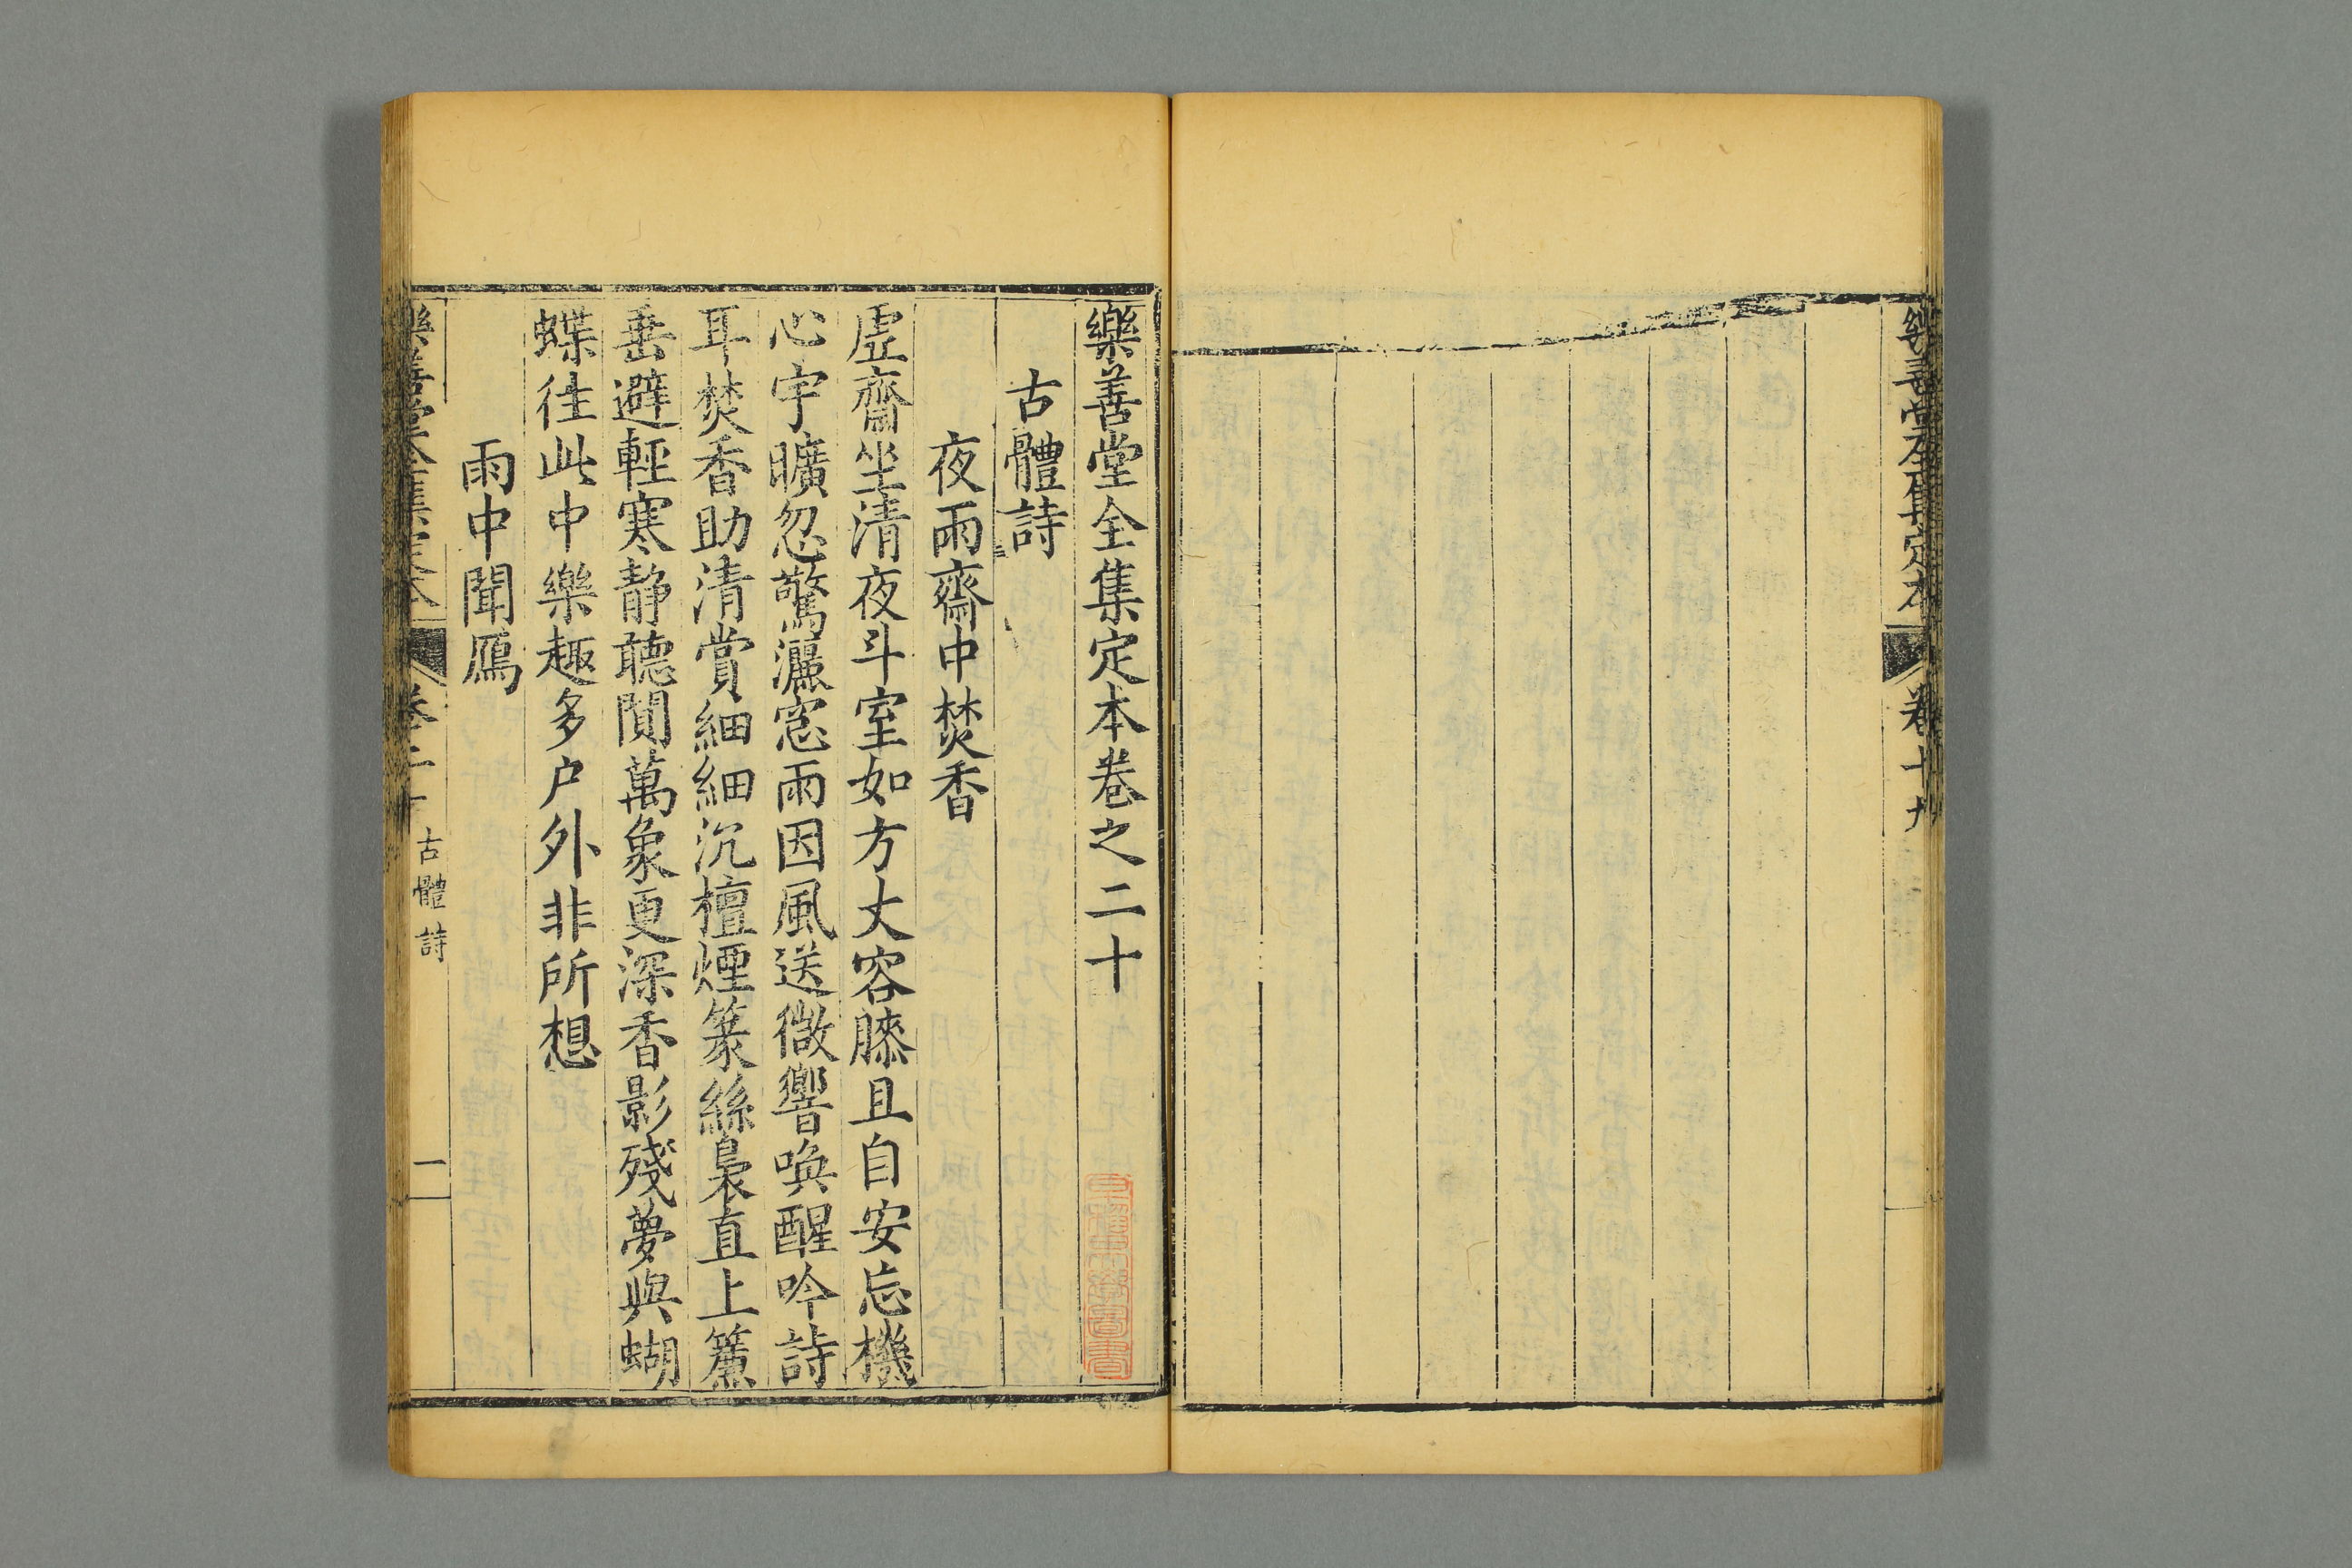 樂善堂全集定本
卷十九
樂善堂全集定本卷之二十
古體詩
夜雨齋中焚香
虛齋坐清夜斗室如方丈容膝且自安忘機
心宇曠忽驚灑窓雨因風送微響喚醒吟詩
耳焚香助清賞細細沉檀煙篆絲裊直上簾
垂避輕寒靜聽閒萬象更深香影殘夢與蝴
蝶往此中樂趣多户外非所想
雨中聞鴈
樂善堂全集定本
卷二十
古體詩
一